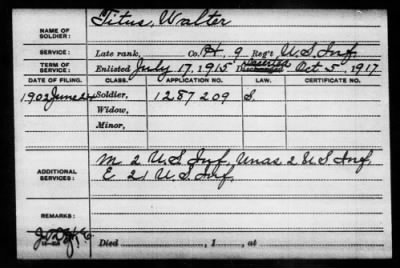 NAME OF SOLDIER: Titus, Walter
SERVICE: Late rank, Co. H, 9 Reg't U.S. Inf.
TERM OF SERVICE: Enlisted July 17, 1915 Deserted Discharged Oct 5, 1917
DATE OF FILING. CLASS. APPLICATION NO. LAW. CERTIFICATE NO.
1902 June 24 Soldier, 1287209 S.
Widow,
Minor,
ADDITIONAL SERVICES: M 2 U.S. Inf, Unas 2 U.S. Inf.
E 21 U.S. Inf.
REMARKS:
Died , 1 , at